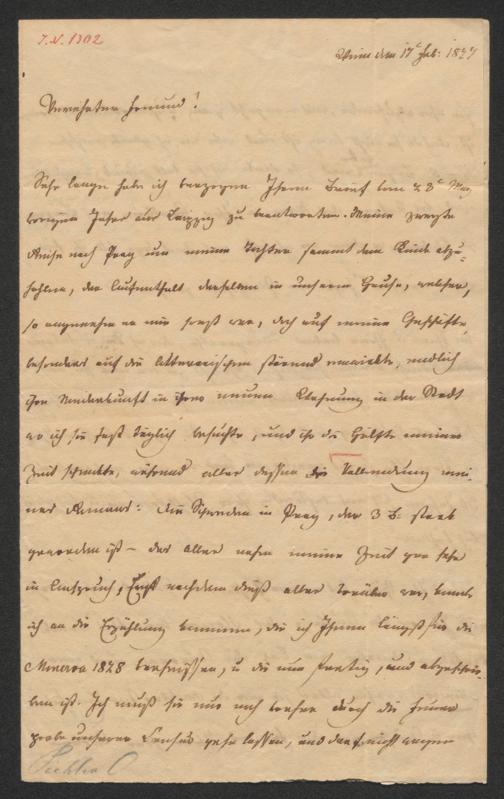 I.N. 1302
Wien den 17t Feb: 1827
Verehrter Freund!
Sehr lange habe ich bezogen Ihren Brief vom 23t May
vorigen Jahrs aus Leipzig zu beantworten. Meine zweyte
Reise nach Prag um meine Tochter sammt dem Kinde abzu-
hohlen, der Aufenthalt derselben in unserm Hause, welcher,
so angenehm er mir sonst war, doch auf meine Geschäfte,
besonders auf die litterarischen störend einwirkte, endlich
ihre Niederkunft in ihrer neuen Wohnung in der Stadt
wo ich sie fast täglich besuchte, und ihr die Hälfte meiner
Zeit schenkte, während aller dessen die Vollendung mei-
nes Romans: die Schweden in Prag, der 3 B. stark
geworden ist – das alles nahm meine Zeit gar sehr
in Anspruch, Erst nachdem dieß alles vorüber war, konnte
ich an die Erzählung kommen, die ich Ihnen längst für die
Minerva 1828 verheissen, u die nun fertig, und abgeschrie-
ben ist. Ich muß sie nur noch vorher durch die Feuer
probe unserer Censur gehn lassen, und darf nicht wagen
Pichler C